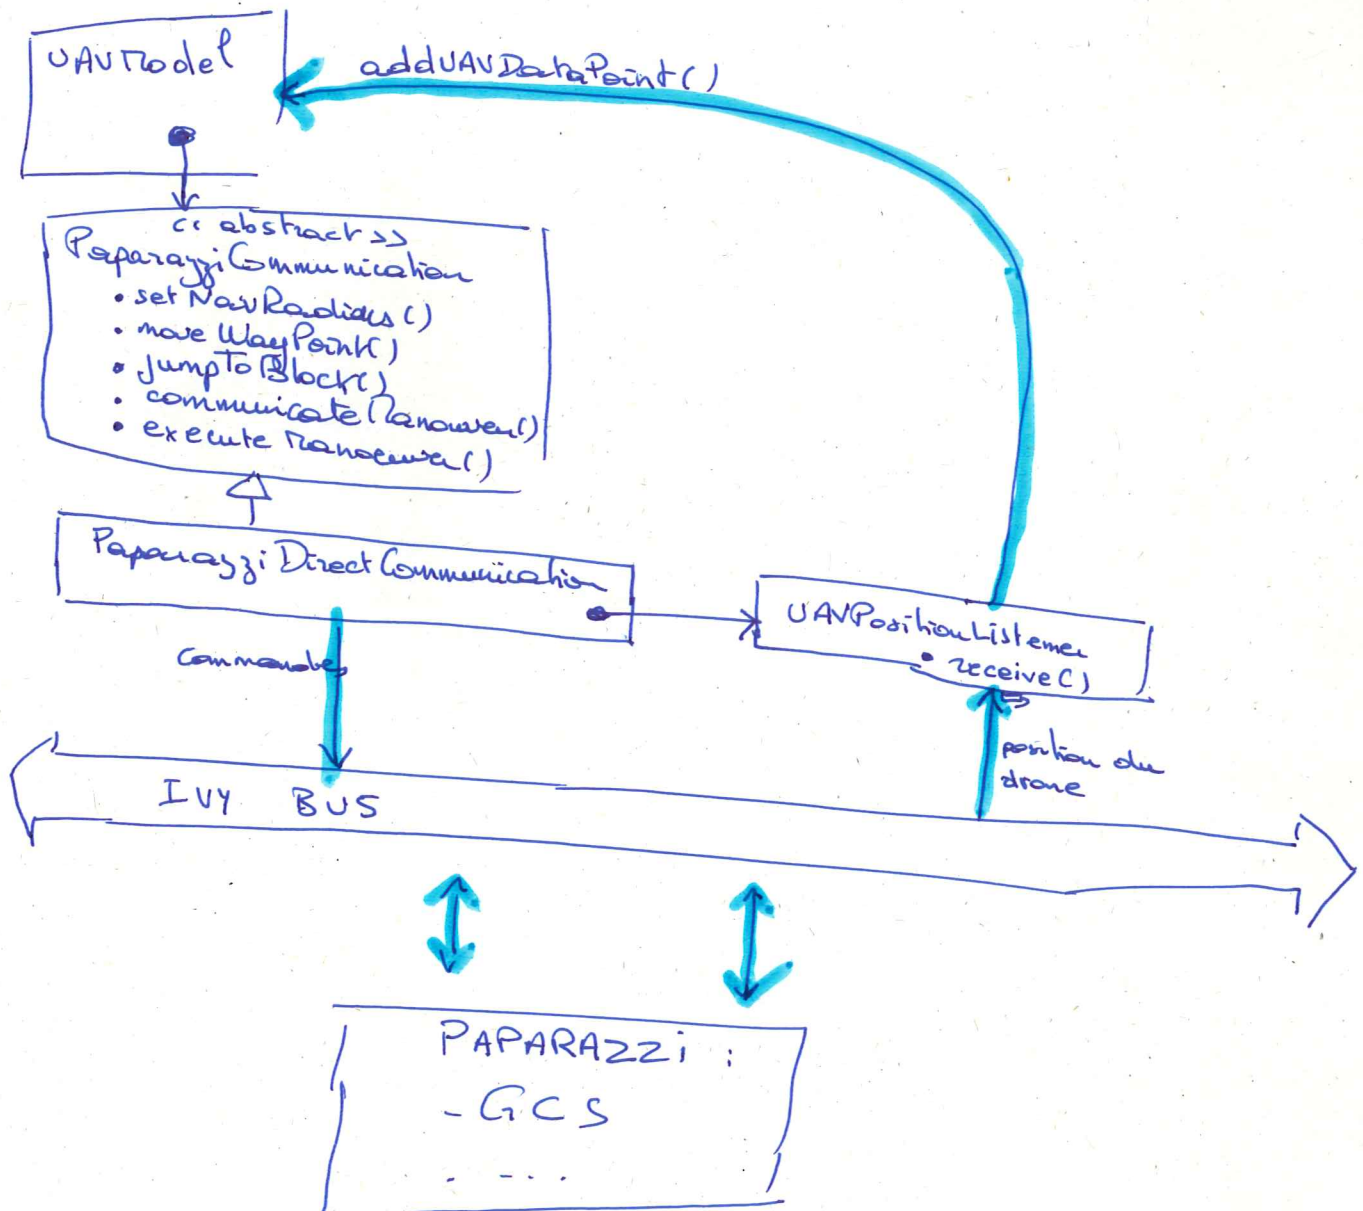 UAVModel
addUAVDataPoint()
<< abstract >>
PaparazziCommunication
• setNavRadius()
• moveWayPoint()
• jumpToBlock()
• communicateManouver()
• executeManoeuver()
PaparazziDirectCommunication
UAVPositionListener
• receive()
Commandes
position du
drone
IVY BUS
PAPARAZZi :
- GCS
. - ...